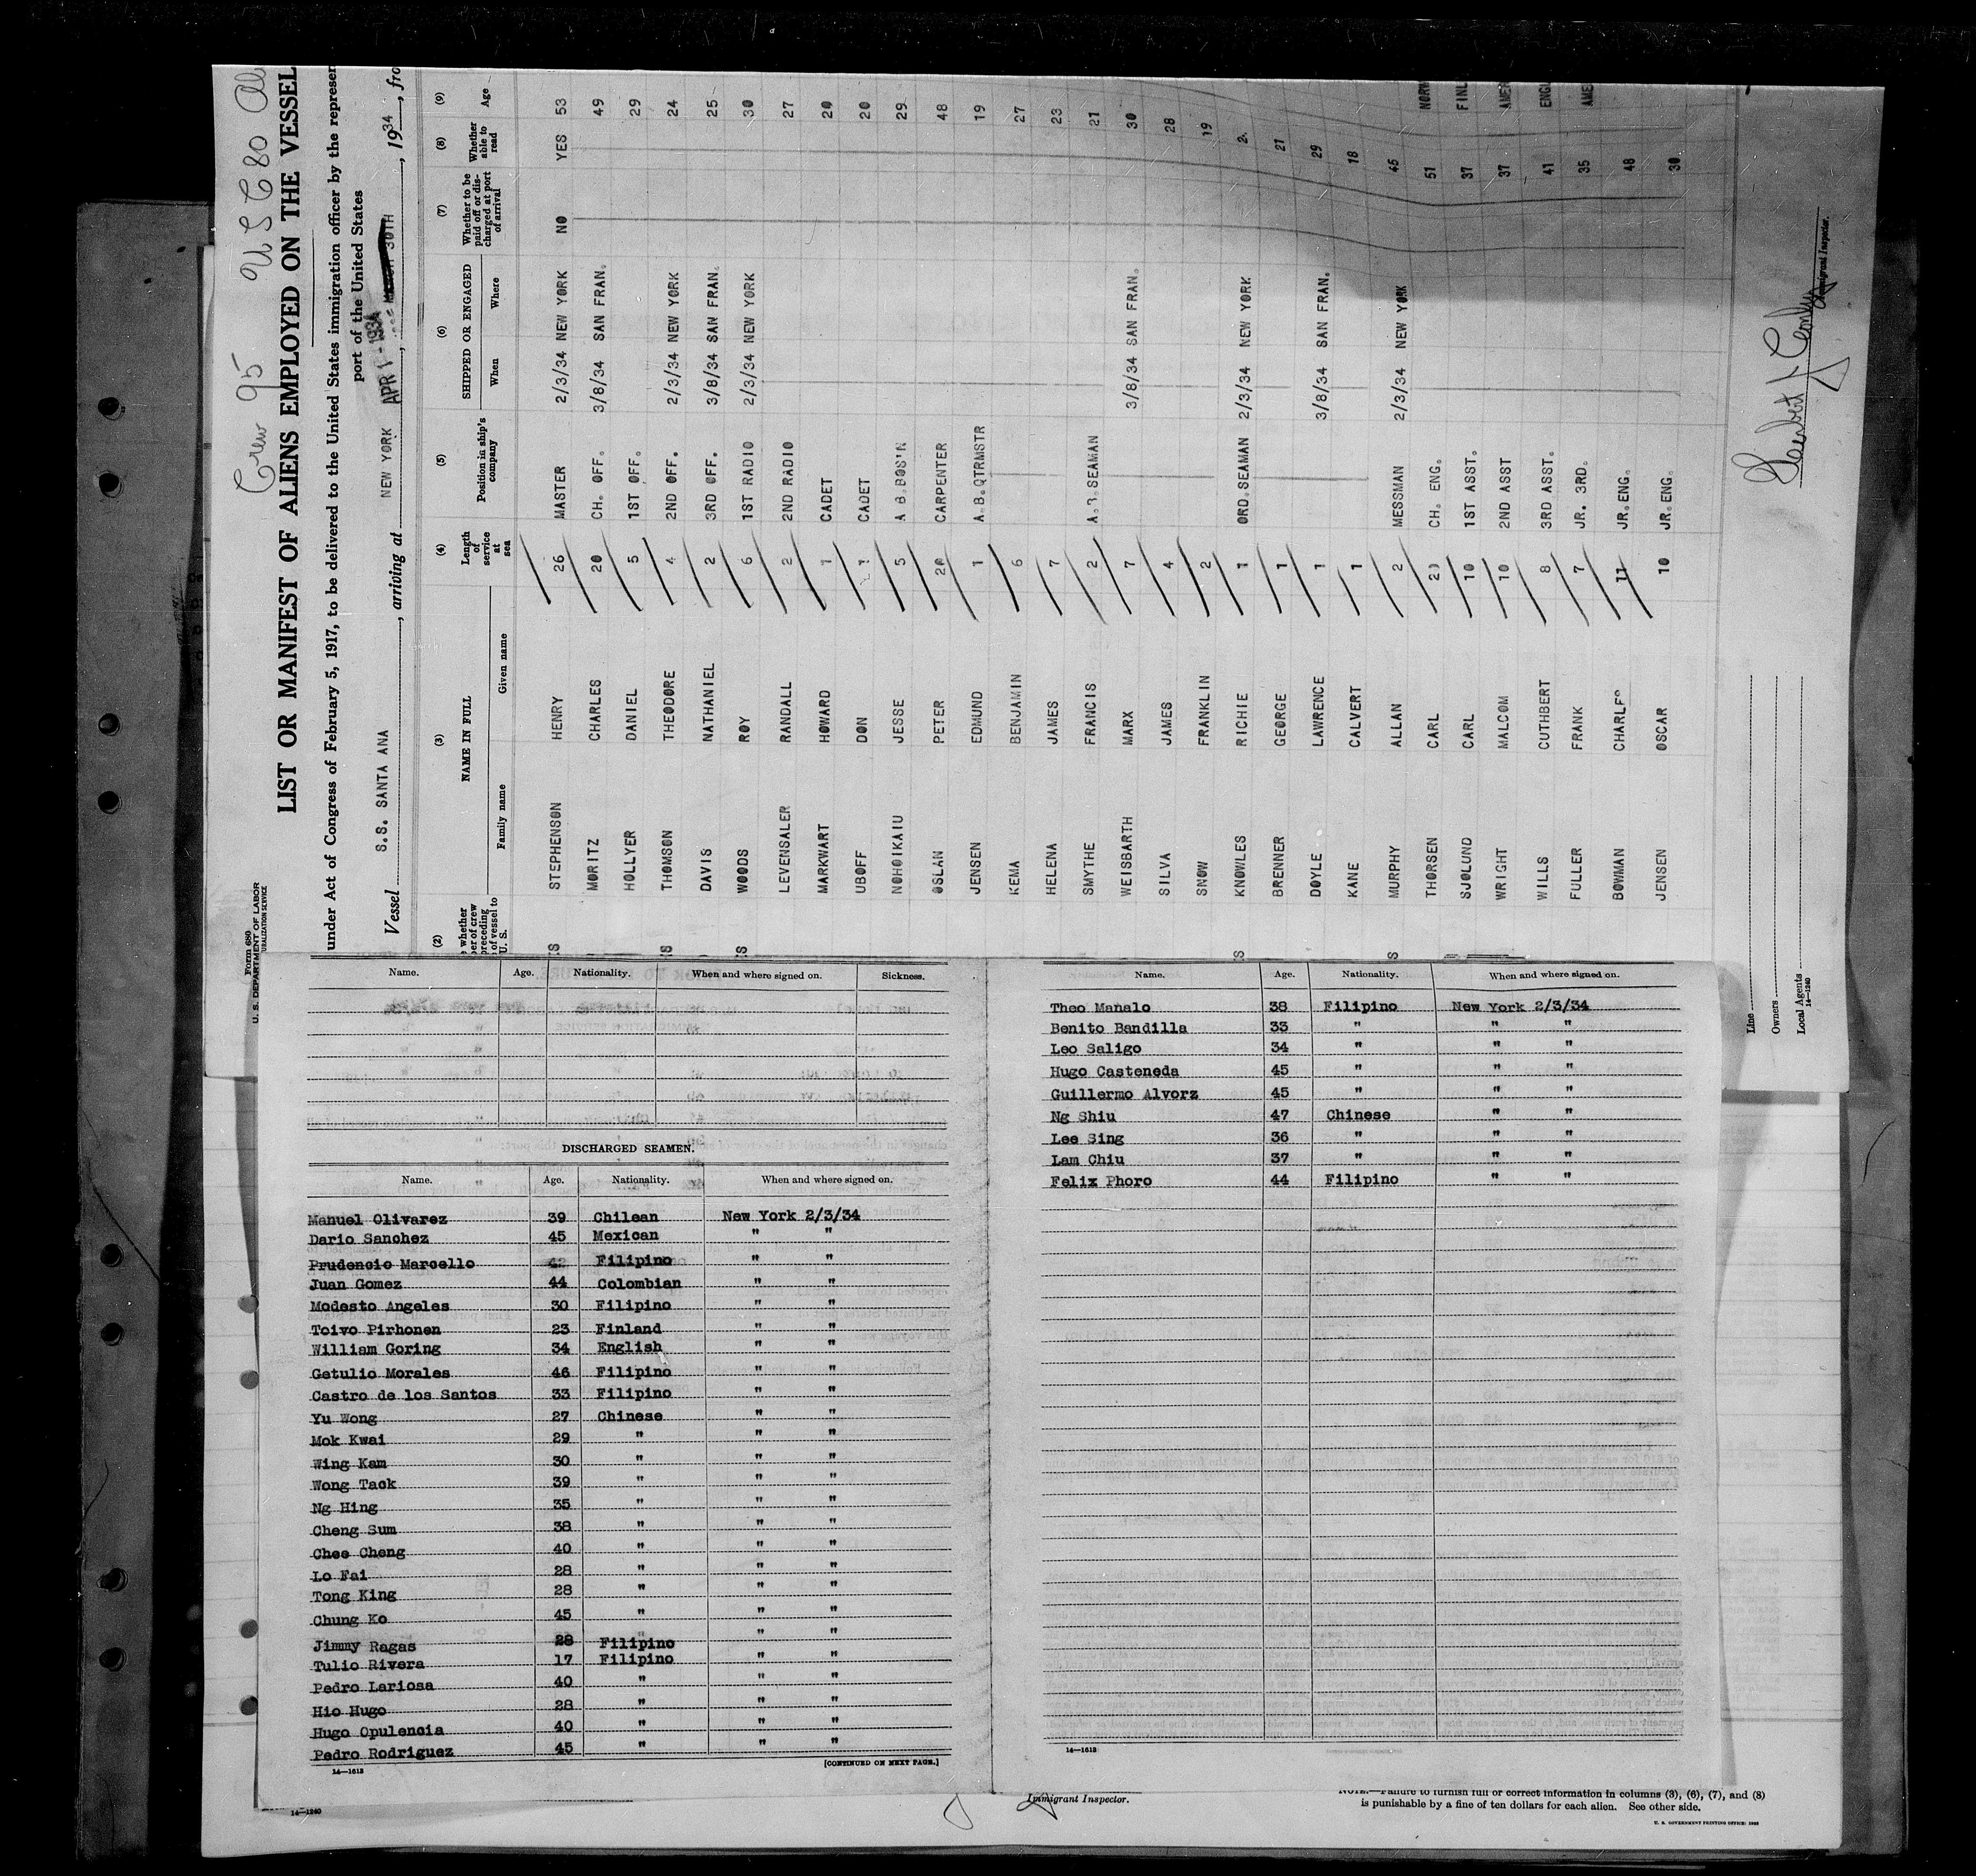 Crew 95 USC 80
LIST OR MANIFEST OF ALIENS EMPLOYED ON THE VESSEL
under Act of Congress of February 5, 1917, to be delivered to the United States immigration officer by the represen
port of the United States
Vessel S.S. SANTA ANA, arriving at NEW YORK APR 1 - 1934, 1934, fro
Form 680
U. S. DEPARTMENT OF LABOR
(2) (3) (4) (5) (6) (7) (8) (9)
NAME IN FULL
Family name Given name
Length of service at sea
Position in ship's company
SHIPPED OR ENGAGED
When Where
Whether to be paid off or discharged at port of arrival
Whether able to read
Age
STEPHENSON HENRY 26 MASTER 2/3/34 NEW YORK NO YES 53
MORITZ CHARLES 20 CH. OFF. 3/8/34 SAN FRAN. 49
HOLLYER DANIEL 5 1ST OFF. 29
THOMSON THEODORE 4 2ND OFF. 2/3/34 NEW YORK 24
DAVIS NATHANIEL 2 3RD OFF. 3/8/34 SAN FRAN. 25
WOODS ROY 6 1ST RADIO 2/3/34 NEW YORK 30
LEVENSALER RANDALL 2 2ND RADIO 27
MARKWART HOWARD 1 CADET 20
UBOFF DON 1 CADET 20
NOHOIKAIU JESSE 5 A B.BOS'N 29
OSLAN PETER 20 CARPENTER 48
JENSEN EDMUND 1 A.B.QTRMSTR 19
KEMA BENJAMIN 6 27
HELENA JAMES 7 23
SMYTHE FRANCIS 2 A.B.SEAMAN 21
WEISBARTH MARX 7 3/8/34 SAN FRAN. 30
SILVA JAMES 4 28
SNOW FRANKLIN 2 19
KNOWLES RICHIE 1 ORD.SEAMAN 2/3/34 NEW YORK
BRENNER GEORGE 1 21
DOYLE LAWRENCE 1 3/8/34 SAN FRAN. 29
KANE CALVERT 1 18
MURPHY ALLAN 2 MESSMAN 2/3/34 NEW YORK 45
THORSEN CARL 20 CH. ENG. 51 NORW
SJOLUND CARL 10 1ST ASST. 37 FINL
WRIGHT MALCOM 10 2ND ASST 37 AME
WILLS CUTHBERT 8 3RD ASST. 41 ENGL
FULLER FRANK 7 JR. 3RD. 35 AME
BOWMAN CHARLES 11 JR.ENG. 48
JENSEN OSCAR 10 JR.ENG. 30
Line
Owners
Local Agents
14—1240
Immigrant Inspector.
Name. Age. Nationality. When and where signed on. Sickness.
DISCHARGED SEAMEN.
Name. Age. Nationality. When and where signed on.
Manuel Olivarez 39 Chilean New York 2/3/34
Dario Sanchez 45 Mexican " "
Prudencio Marcello 42 Filipino " "
Juan Gomez 44 Colombian " "
Modesto Angeles 30 Filipino " "
Toivo Pirhonen 23 Finland " "
William Goring 34 English " "
Getulio Morales 46 Filipino " "
Castro de los Santos 33 Filipino " "
Yu Wong 27 Chinese " "
Mok Kwai 29 " " "
Wing Kam 30 " " "
Wong Tack 39 " " "
Ng Hing 35 " " "
Cheng Sum 38 " " "
Chee Cheng 40 " " "
Lo Fai 28 " " "
Tong King 28 " " "
Chung Ko 45 " " "
Jimmy Ragas 28 Filipino " "
Tulio Rivera 17 Filipino " "
Pedro Lariosa 40 " " "
Hio Hugo 28 " " "
Hugo Opulencia 40 " " "
Pedro Rodriguez 45 " " "
14—1613 [CONTINUED ON NEXT PAGE.]
Name. Age. Nationality. When and where signed on.
Theo Manalo 38 Filipino New York 2/3/34
Benito Bandilla 33 " " "
Leo Saligo 34 " " "
Hugo Casteneda 45 " " "
Guillermo Alvorz 45 " " "
Ng Shiu 47 Chinese " "
Lee Sing 36 " " "
Lam Chiu 37 " " "
Felix Phoro 44 Filipino " "
14—1613
14—1240
Immigrant Inspector.
NOTE.—Failure to furnish full or correct information in columns (3), (6), (7), and (8)
is punishable by a fine of ten dollars for each alien. See other side.
U. S. GOVERNMENT PRINTING OFFICE: